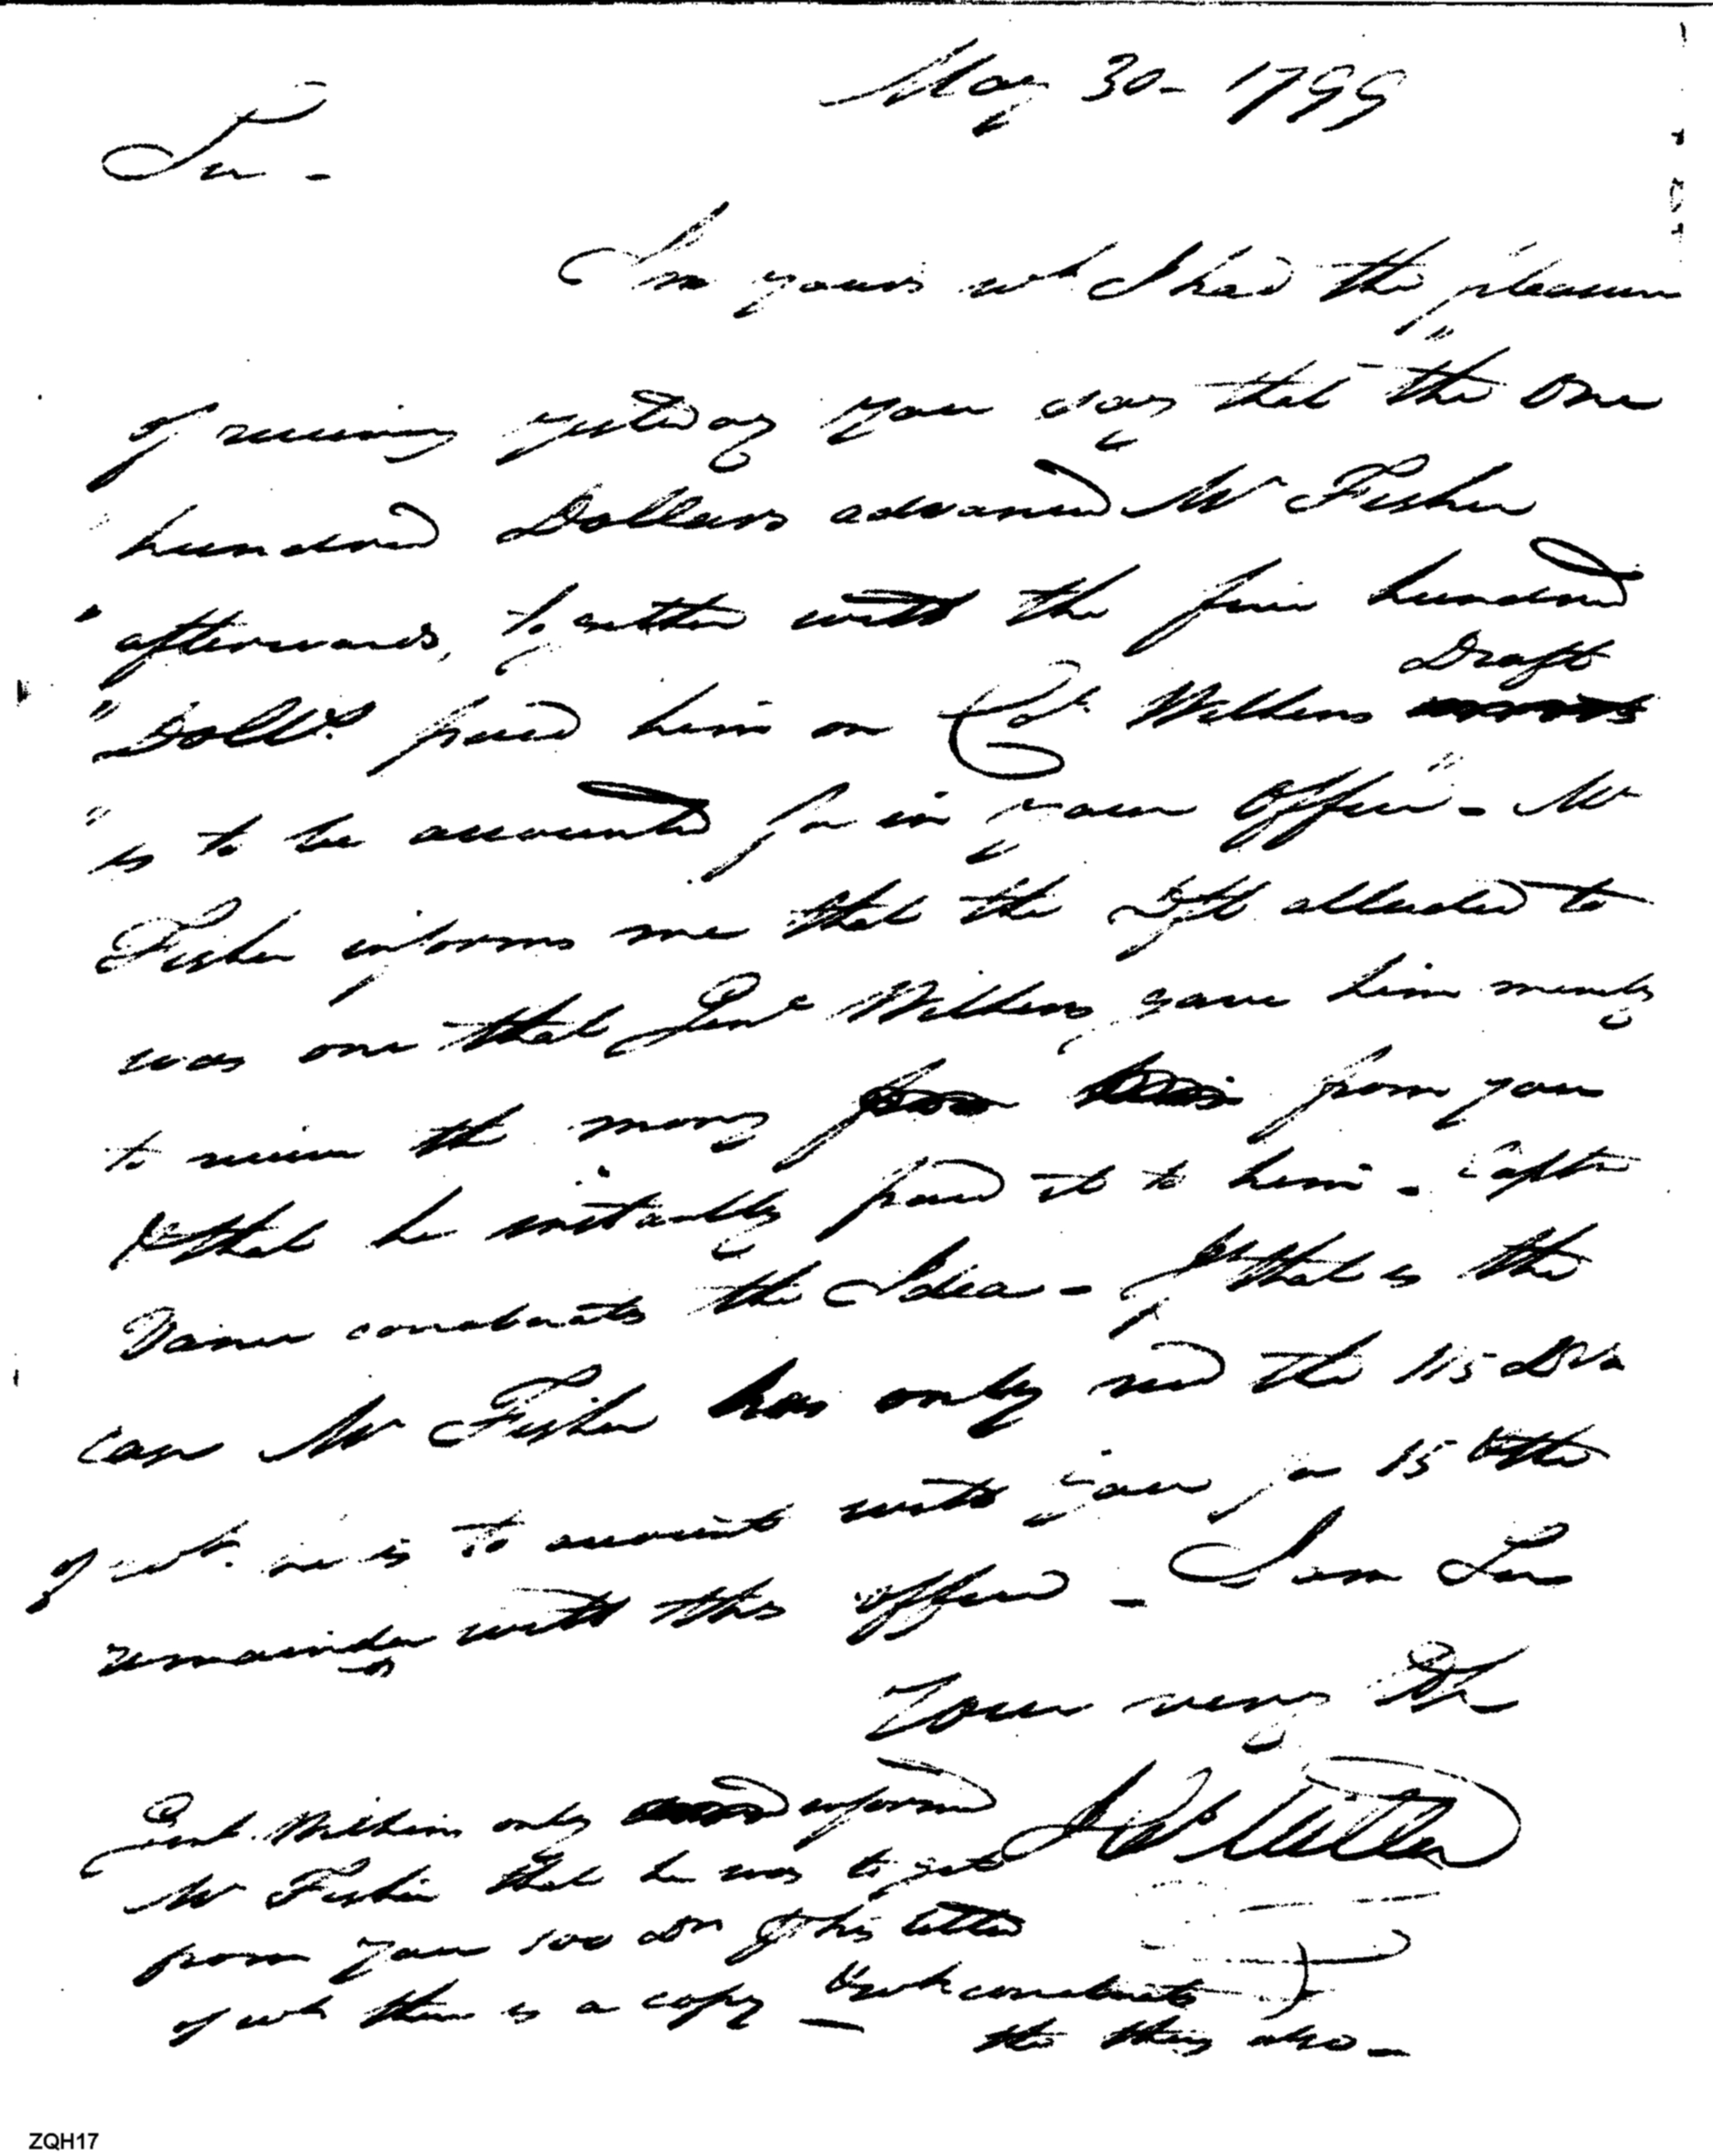 May 30 - 1799
Sir -
In yours wh I had the pleasure
of receiving yesterday you say that " the one
" hundred Dollars advanced Mr Fisher
" afterwards, together with the five hundred
Draft
" Dolls. paid him on Wilkins
" is to be accounted for in your office " - Mr
Fisher informs me that the Dft alluded to
was one that Genl Wilkins gave him merely
to receive the money from you
& that he instantly paid it to him - Captn
Vance corroborates the Idea - If that is the
case Mr Fisher has only recd the 115 Drs
of wh. he is to account with you for 15 & the
remainder with this office - I am Sir
Your very
Genl. Wilkins only informed
Mr Fisher that he was to get
from you 100 Drs & his letter
of wh there is a copy - corroborates
the thing also -
ZQH17